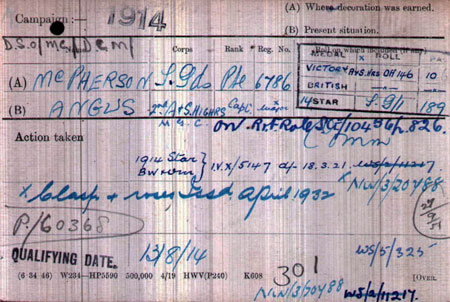 Campaign :— 1914
(A) Where decoration was earned.
(B) Present situation.
D.S.O/M.G./D.C.M/
Corps Rank Reg. No. Roll on which included (if any)
MEDAL ROLL PAGE
(A) McPHERSON S. Gds Pte 6786
VICTORY A&S. Hrs Off 146 10
BRITISH —do— do
(B) ANGUS 2nd A+S. HIGHRS Capt. & Major
14 STAR S. G/1 189
M.G.C.
Action taken
1914 Star BWM & VM IV.X/5147 d/- 18.3.21.
x Clasp + roses Issd April 1932 x NW/3/20488
P/60368
QUALIFYING DATE. 13/8/14
WS/5/325
(6 34 46) W234—HP5590 500,000 4/19 HWV(P240) K608
301
[OVER.
NW/3/20488
WS/2/11217.